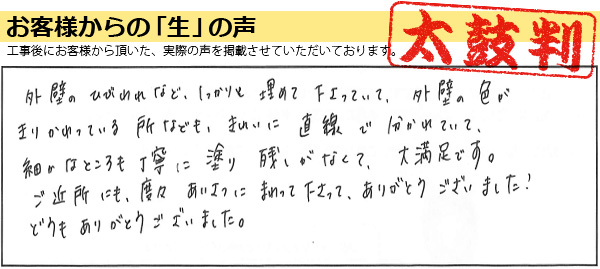 お客様からの「生」の声
工事後にお客様から頂いた、実際の声を掲載させていただいております。
太鼓判
外壁のひびわれなど、しっかりと埋めて下さっていて、外壁の色が
きりかわっている所なども、きれいに直線で分かれていて、
細かなところも丁寧に塗り残しがなくて、大満足です。
ご近所にも、度々あいさつにまわって下さって、ありがとうございました!
どうもありがとうございました。